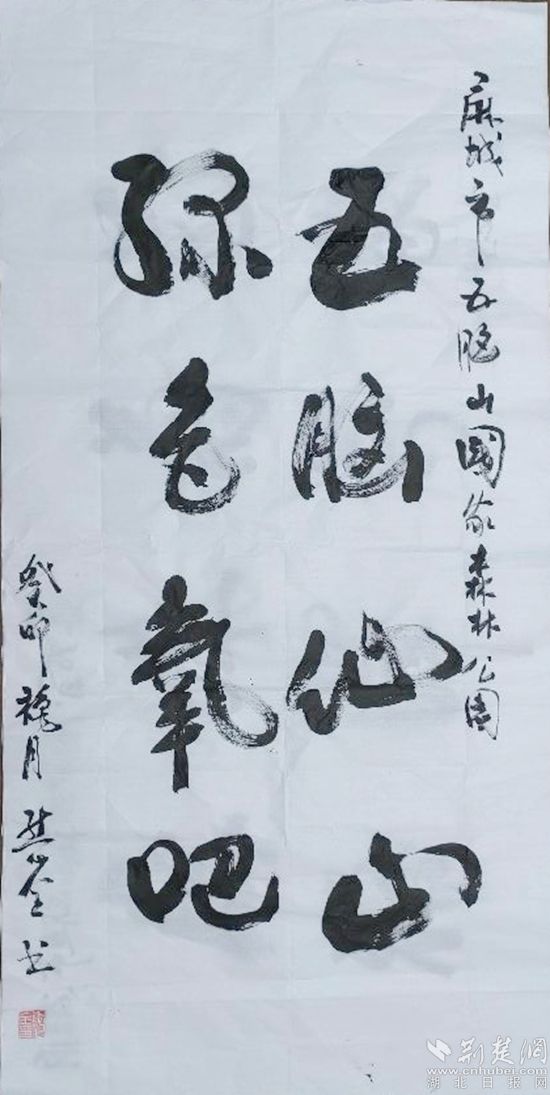 麻城市五脑山國家森林公园
五脑仙山
绿色氧吧
癸卯槐月 书
荆楚網
www.cnhubei.com
湖北日报网